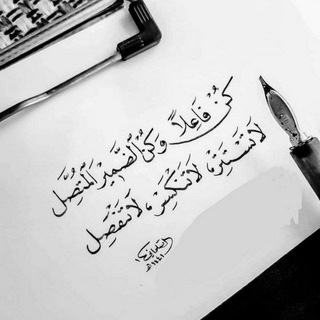 كُنْ فَاعِلاً وَكُنِ الضَّمِيْرَ الْمُتَّصِّل
لَا تَسْتَتِرْ، لَا تَنْكَسِرْ، لَا تَنْفَصِل